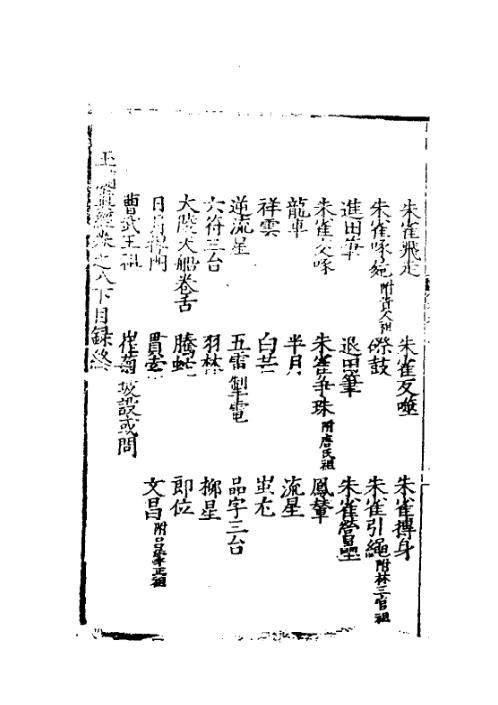 朱雀飛走 朱雀反噬 朱雀摶身
朱雀啄 附黃父祖 傑鼓 朱雀引繩 附林三官祖
進田筆 退田筆 朱雀營壘
朱雀交啄 朱雀爭珠 附唐氏祖 鳳輦
龍車 半月 流星
祥雲 白芒
逆流星 五雷掣電 品字三台
六符三台 羽林 柳星
大陵天船卷舌 騰蛇 即位
日月 門 貫索 文昌 附
曹武王祖 崔菊坡設或問
經卷之八下目錄終